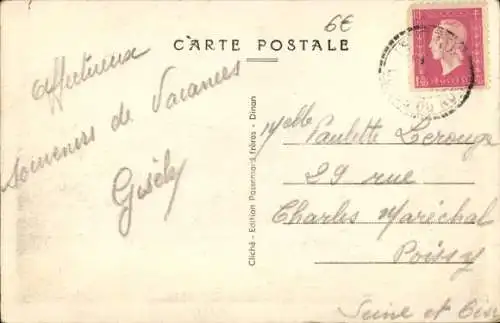 6€
CARTE POSTALE
affectueux
souvenirs de Vacances
Gisèle
Cliché - Edition Passemard frères - Dinan
Melle Paulette Lerouge
29 rue
Charles Maréchal
Poissy
Seine et Oise